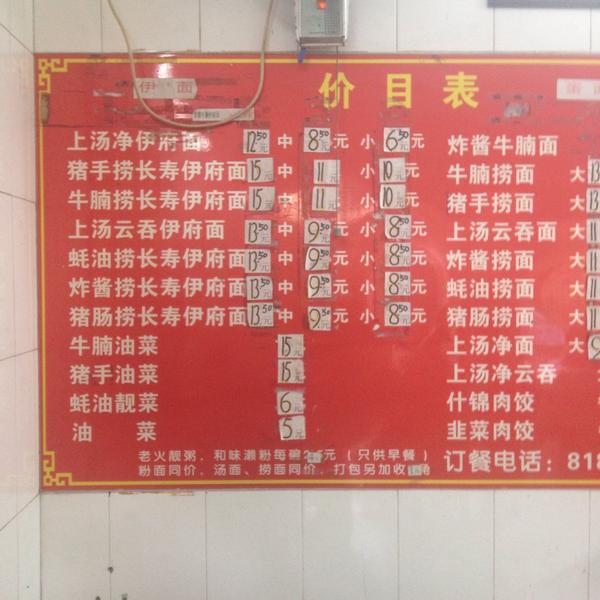 伊 面
价目表
上汤净伊府面 12.50元 中 8.50元 小 6.50元
猪手捞长寿伊府面 15元 中 11元 小 10元
牛腩捞长寿伊府面 15元 中 11元 小 10元
上汤云吞伊府面 13.50元 中 9.50元 小 8.50元
蚝油捞长寿伊府面 13.50元 中 9.50元 小 8.50元
炸酱捞长寿伊府面 13.50元 中 9.50元 小 8.50元
猪肠捞长寿伊府面 13.50元 中 9.50元 小 8.50元
牛腩油菜 15元
猪手油菜 15元
蚝油靓菜 6元
油 菜 5元
炸酱牛腩面
牛腩捞面 大
猪手捞面 大
上汤云吞面 大
炸酱捞面 大
蚝油捞面 大
猪肠捞面 大
上汤净面 大
上汤净云吞
什锦肉饺
韭菜肉饺
老火靓粥、和味濑粉每碗 元（只供早餐）
粉面同价、汤面、捞面同价、打包另加收
订餐电话：818